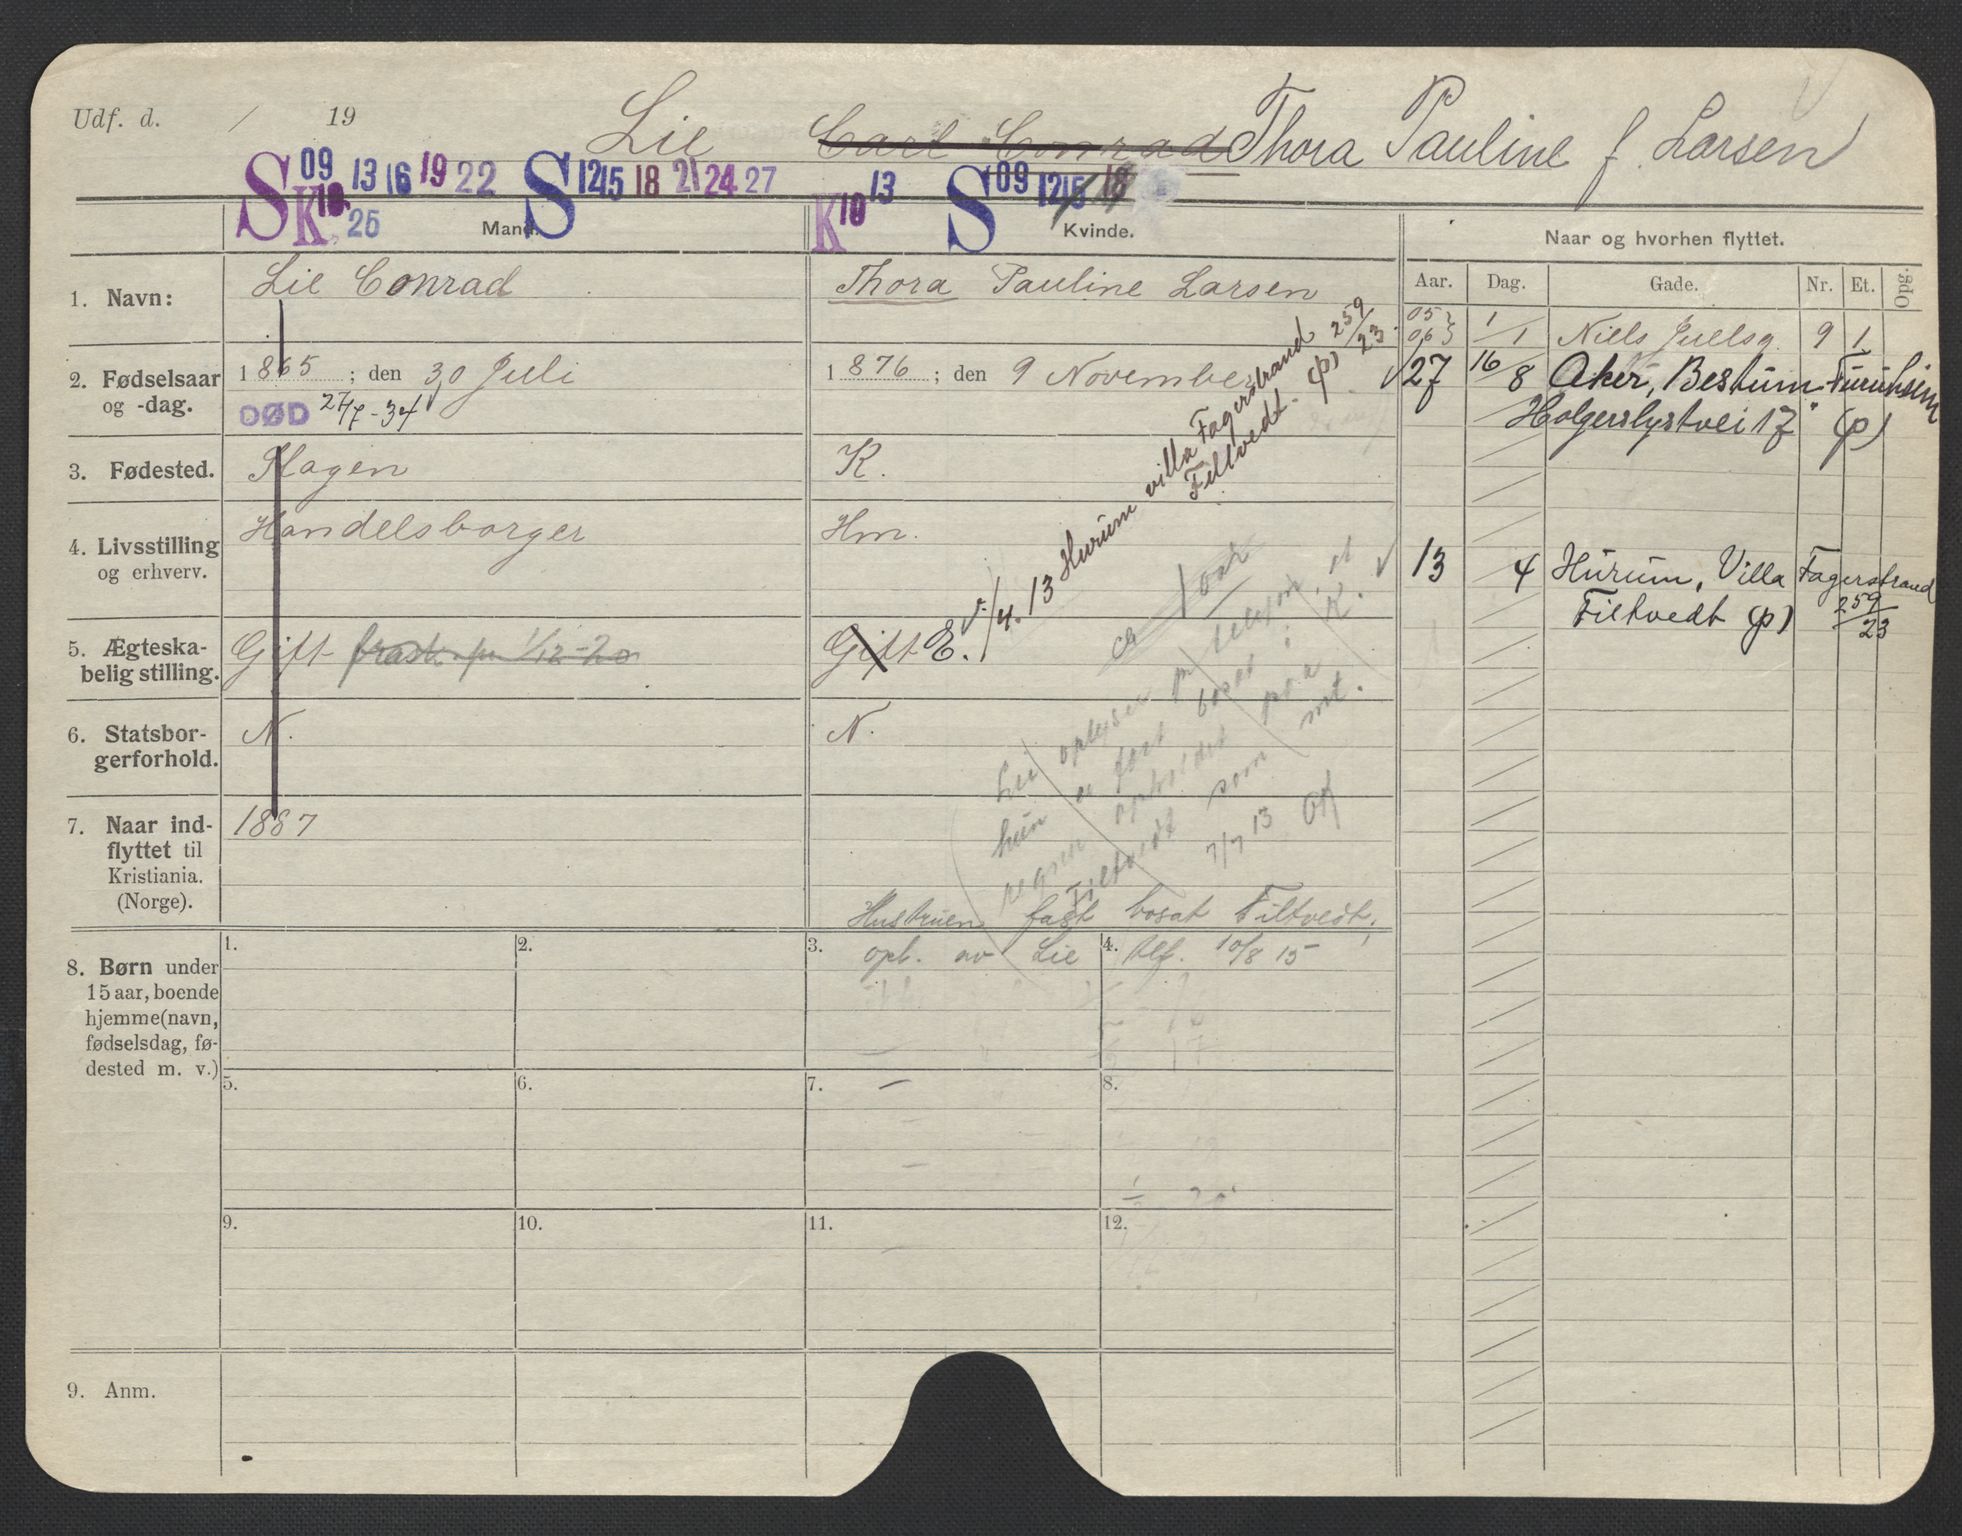 Udf. d. / 19
Lie Carl Conrad Thora Pauline f. Larsen
S 09 13 16 19 22 S 12 15 18 21 24 27 K 10 13 S 09 12 15 18
K 10 25
Mand. Kvinde. Naar og hvorhen flyttet.
Aar. Dag. Gade. Nr. Et. Opg.
1. Navn: Lie Conrad Thora Pauline Larsen
05 06 1/1 Niels Juelsg. 9 1
2. Fødselsaar og -dag. 1865; den 30 Juli 1876; den 9 November
DØD 27/7-34
27 16/8 Aker, Bestum Furuheim
Holgerslystvei 17 (p)
3. Fødested. Slagen K.
4. Livsstilling og erhverv. Handelsborger Hm.
1/4. 13 Hurum villa Fagerstrand 259/23
Filtvedt. (p)
13 4 Hurum, Villa Fagerstrand
Filtvedt (p) 259/23
5. Ægteska-
belig stilling. Gift frask. pr 1/12-20 Gift E.
6. Statsbor-
gerforhold. N. N.
Lie oplyser pr telefon, at
hun er fast bosat i K.
regner opholdet paa
Filtvedt som mt.
7/7 13 OK
7. Naar ind-
flyttet til
Kristiania.
(Norge). 1887
Hustruen fast bosat Filtvedt,
opl. av Lie tlf. 10/8 15
8. Børn under
15 aar, boende
hjemme (navn,
fødselsdag, fø-
dested m. v.)
1. 2. 3. 4.
5. 6. 7. 8.
9. 10. 11. 12.
9. Anm.